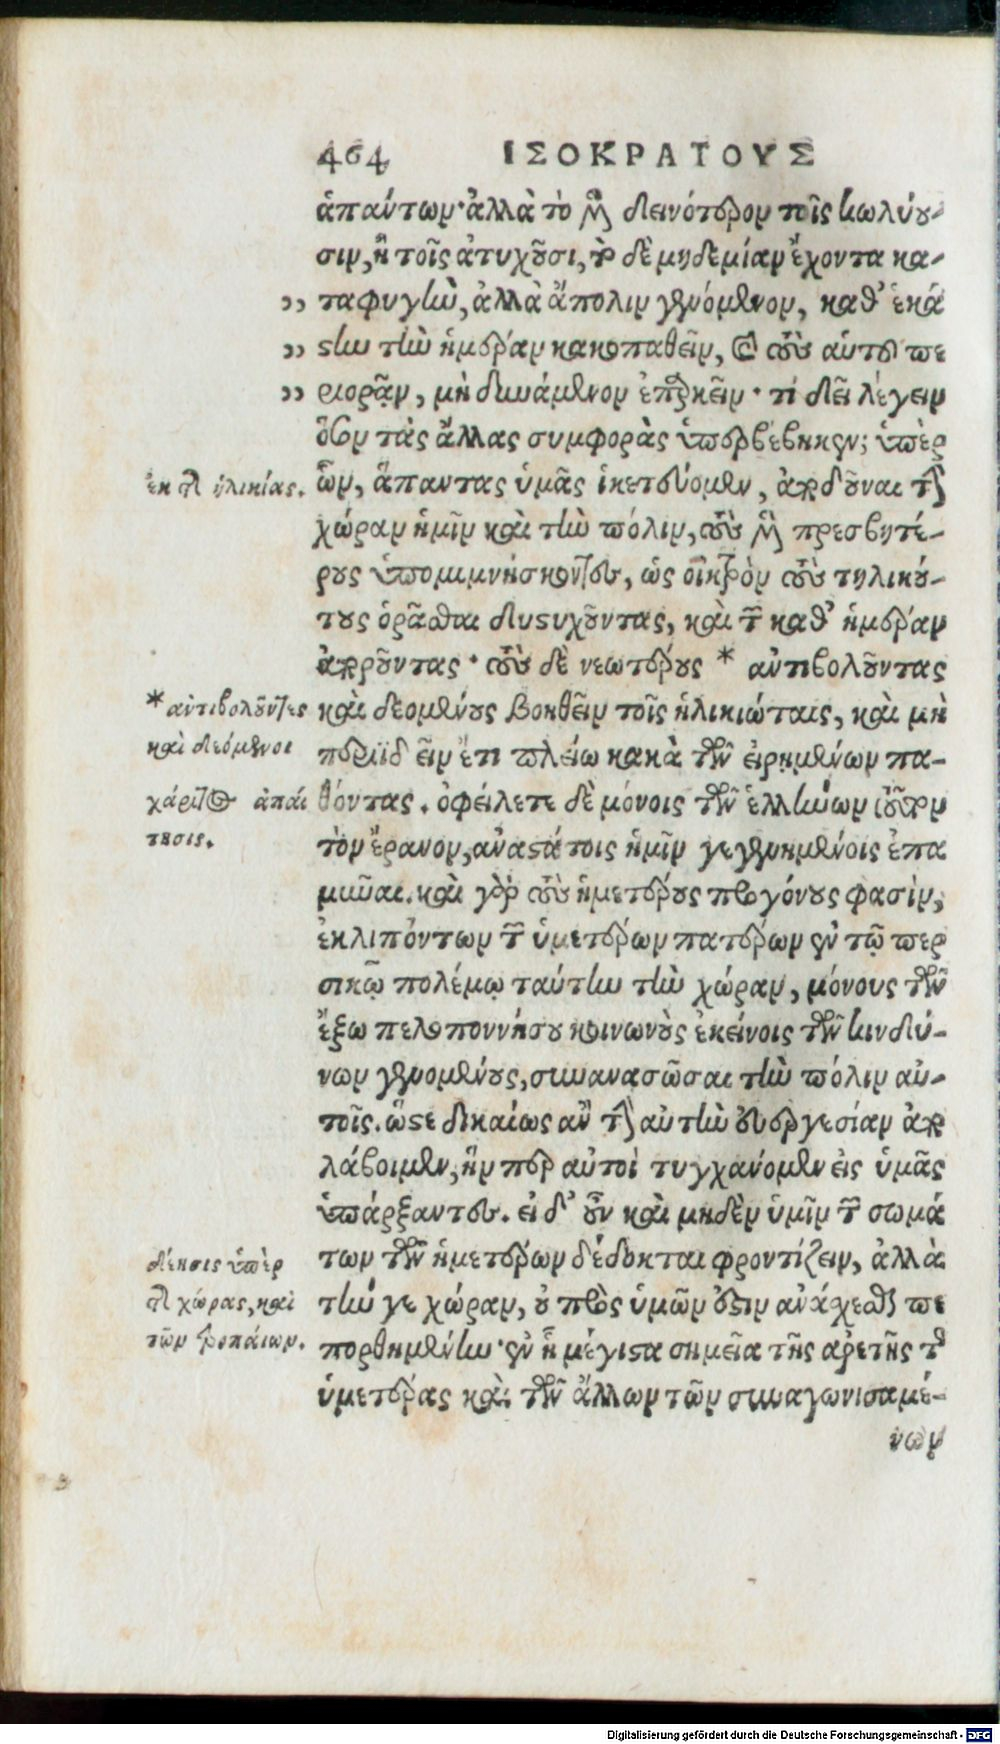 464 ΙΣΟΚΡΑΤΟΥΣ
ἁπάντων· ἀλλὰ τὸ μὲν δεινότερον τοῖς κωλύου-
σιν, ἢ τοῖς ἀτυχοῦσι, τὸ δὲ μηδεμίαν ἔχοντα κα-
„ ταφυγὴν, ἀλλὰ ἄπολιν γενόμενον, καθ' ἑκά
„ στην τὴν ἡμέραν κακοπαθεῖν, καὶ τοὺς αὑτοῦ πε
„ ριορᾷν, μὴ δυνάμενον ἐπαρκεῖν· τί δεῖ λέγειν
ὅσον τὰς ἄλλας συμφορὰς ὑπερβέβηκεν; ὑπὲρ
ἐκ τῆς ἡλικίας.
ὧν, ἅπαντας ὑμᾶς ἱκετεύομεν, ἀποδοῦναι τὴν
χώραν ἡμῖν καὶ τὴν πόλιν, τοὺς μὲν πρεσβυτέ-
ρους ὑπομιμνήσκοντες, ὡς οἰκτρὸν τοὺς τηλικού-
τους ὁρᾶσθαι δυστυχοῦντας, καὶ τῶν καθ' ἡμέραν
ἀποροῦντας· τοὺς δὲ νεωτέρους * ἀντιβολοῦντας
* ἀντιβολοῦντες
καὶ δεόμενοι
καὶ δεομένους βοηθεῖν τοῖς ἡλικιώταις, καὶ μὴ
περιϊδεῖν ἔτι πλείω κακὰ τῶν εἰρημένων πα-
χάριτος ἀπαί
τησις.
θόντας. ὀφείλετε δὲ μόνοις τῶν ἑλλήνων τοῦτον
τὸν ἔρανον, ἀναστάτοις ἡμῖν γεγενημένοις ἐπα
μῦναι. καὶ γὰρ τοὺς ἡμετέρους προγόνους φασὶν,
ἐκλιπόντων τῶν ὑμετέρων πατέρων ἐν τῷ περ
σικῷ πολέμῳ ταύτην τὴν χώραν, μόνους τῶν
ἔξω πελοποννήσου κοινωνοὺς ἐκείνοις τῶν κινδύ-
νων γενομένους, συνανασῶσαι τὴν πόλιν αὐ-
τοῖς. ὥστε δικαίως ἂν τὴν αὐτὴν εὐεργεσίαν ἀπο
λάβοιμεν, ἥν περ αὐτοὶ τυγχάνομεν εἰς ὑμᾶς
ὑπάρξαντες. εἰ δ' οὖν καὶ μηδὲν ὑμῖν τῶν σωμά
δέησις ὑπὲρ
τῆς χώρας, καὶ
τῶν τροπαίων.
των τῶν ἡμετέρων δέδοκται φροντίζειν, ἀλλὰ
τήν γε χώραν, οὐ πρὸς ὑμῶν ἐστιν ἀνέχεσθαι πε
πορθημένην· ἐν ᾗ μέγιστα σημεῖα τῆς ἀρετῆς τῆς
ὑμετέρας καὶ τῶν ἄλλων τῶν συναγωνισαμέ-
νων
Digitalisierung gefördert durch die Deutsche Forschungsgemeinschaft - DFG